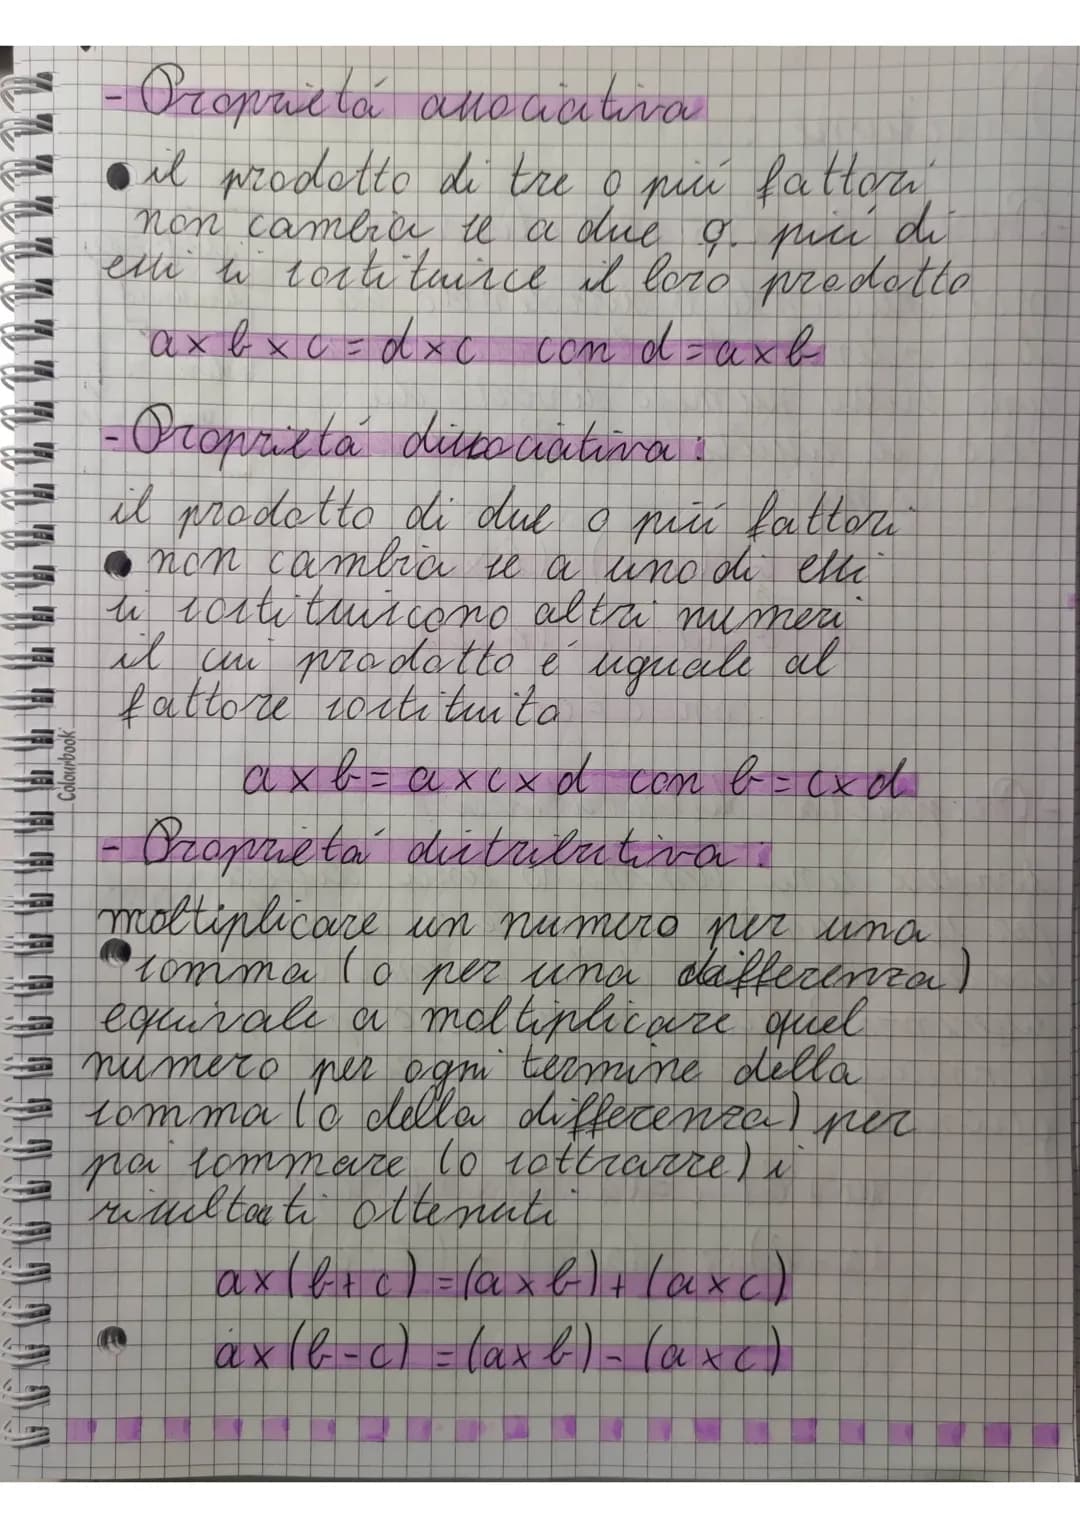 - Proprietá associativa
il prodotto di tre o piú fattori
non cambia se a due o piú di
essi si sostituisce il loro prodotto
a x b x c = d x c con d = a x b
- Proprietá dissociativa :
il prodotto di due o piú fattori
non cambia se a uno di essi
si sostituiscono altri numeri
il cui prodotto é uguale al
fattore sostituito
a x b = a x c x d con b = c x d
Colourbook
- Proprietá distributiva :
moltiplicare un numero per una
somma (o per una differenza)
equivale a moltiplicare quel
numero per ogni termine della
somma (o della differenza) per
poi sommare (o sottrarre) i
risultati ottenuti
a x (b + c) = (a x b) + (a x c)
a x (b - c) = (a x b) - (a x c)